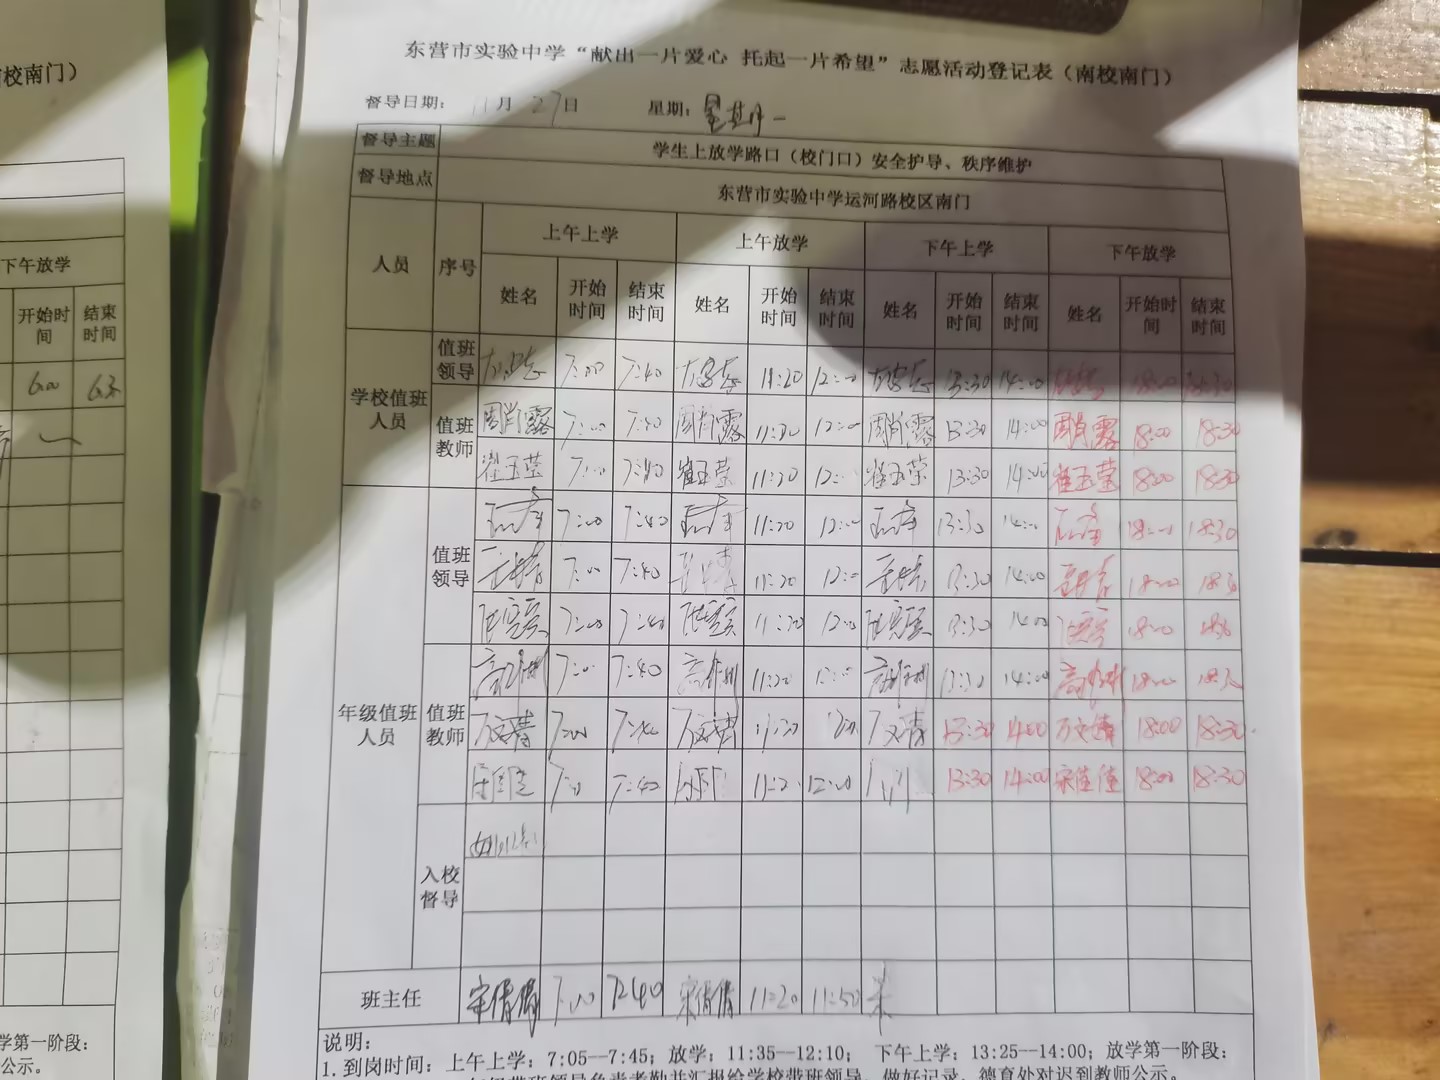 校南门）
下午放学
开始时间 结束时间
6:00 6:30
学第一阶段：
公示。
东营市实验中学“献出一片爱心 托起一片希望”志愿活动登记表（南校南门）
督导日期： 11月 27日 星期：星期一
督导主题 学生上放学路口（校门口）安全护导、秩序维护
督导地点 东营市实验中学运河路校区南门
人员 序号 上午上学 上午放学 下午上学 下午放学
姓名 开始时间 结束时间 姓名 开始时间 结束时间 姓名 开始时间 结束时间 姓名 开始时间 结束时间
学校值班人员 值班领导 7:00 7:40 11:20 12:00 13:30 14:00 18:00 18:30
值班教师 周肖露 7:00 7:40 周肖露 11:20 12:00 周肖露 13:30 14:00 周肖露 18:00 18:30
崔玉莹 7:00 7:40 崔玉莹 11:20 12:00 崔玉莹 13:30 14:00 崔玉莹 18:00 18:30
年级值班人员 值班领导 7:00 7:40 11:20 12:00 13:30 14:00 18:00 18:30
7:00 7:40 11:20 12:00 13:30 14:00 18:00 18:30
7:00 7:40 11:20 12:00 13:30 14:00 18:00 18:30
值班教师 7:00 7:40 11:20 12:00 13:30 14:00 18:00 18:30
万文婧 7:00 7:40 万文婧 11:20 12:00 万文婧 13:30 14:00 万文婧 18:00 18:30
7:00 7:40 11:20 12:00 13:30 14:00 宋佳佳 18:00 18:30
入校督导
班主任 宋倩倩 7:00 7:40 宋倩倩 11:20 11:50 宋
说明：
1.到岗时间：上午上学：7:05--7:45；放学：11:35--12:10； 下午上学：13:25--14:00；放学第一阶段：
带班领导负责考勤并汇报给学校带班领导，做好记录，德育处对迟到教师公示。